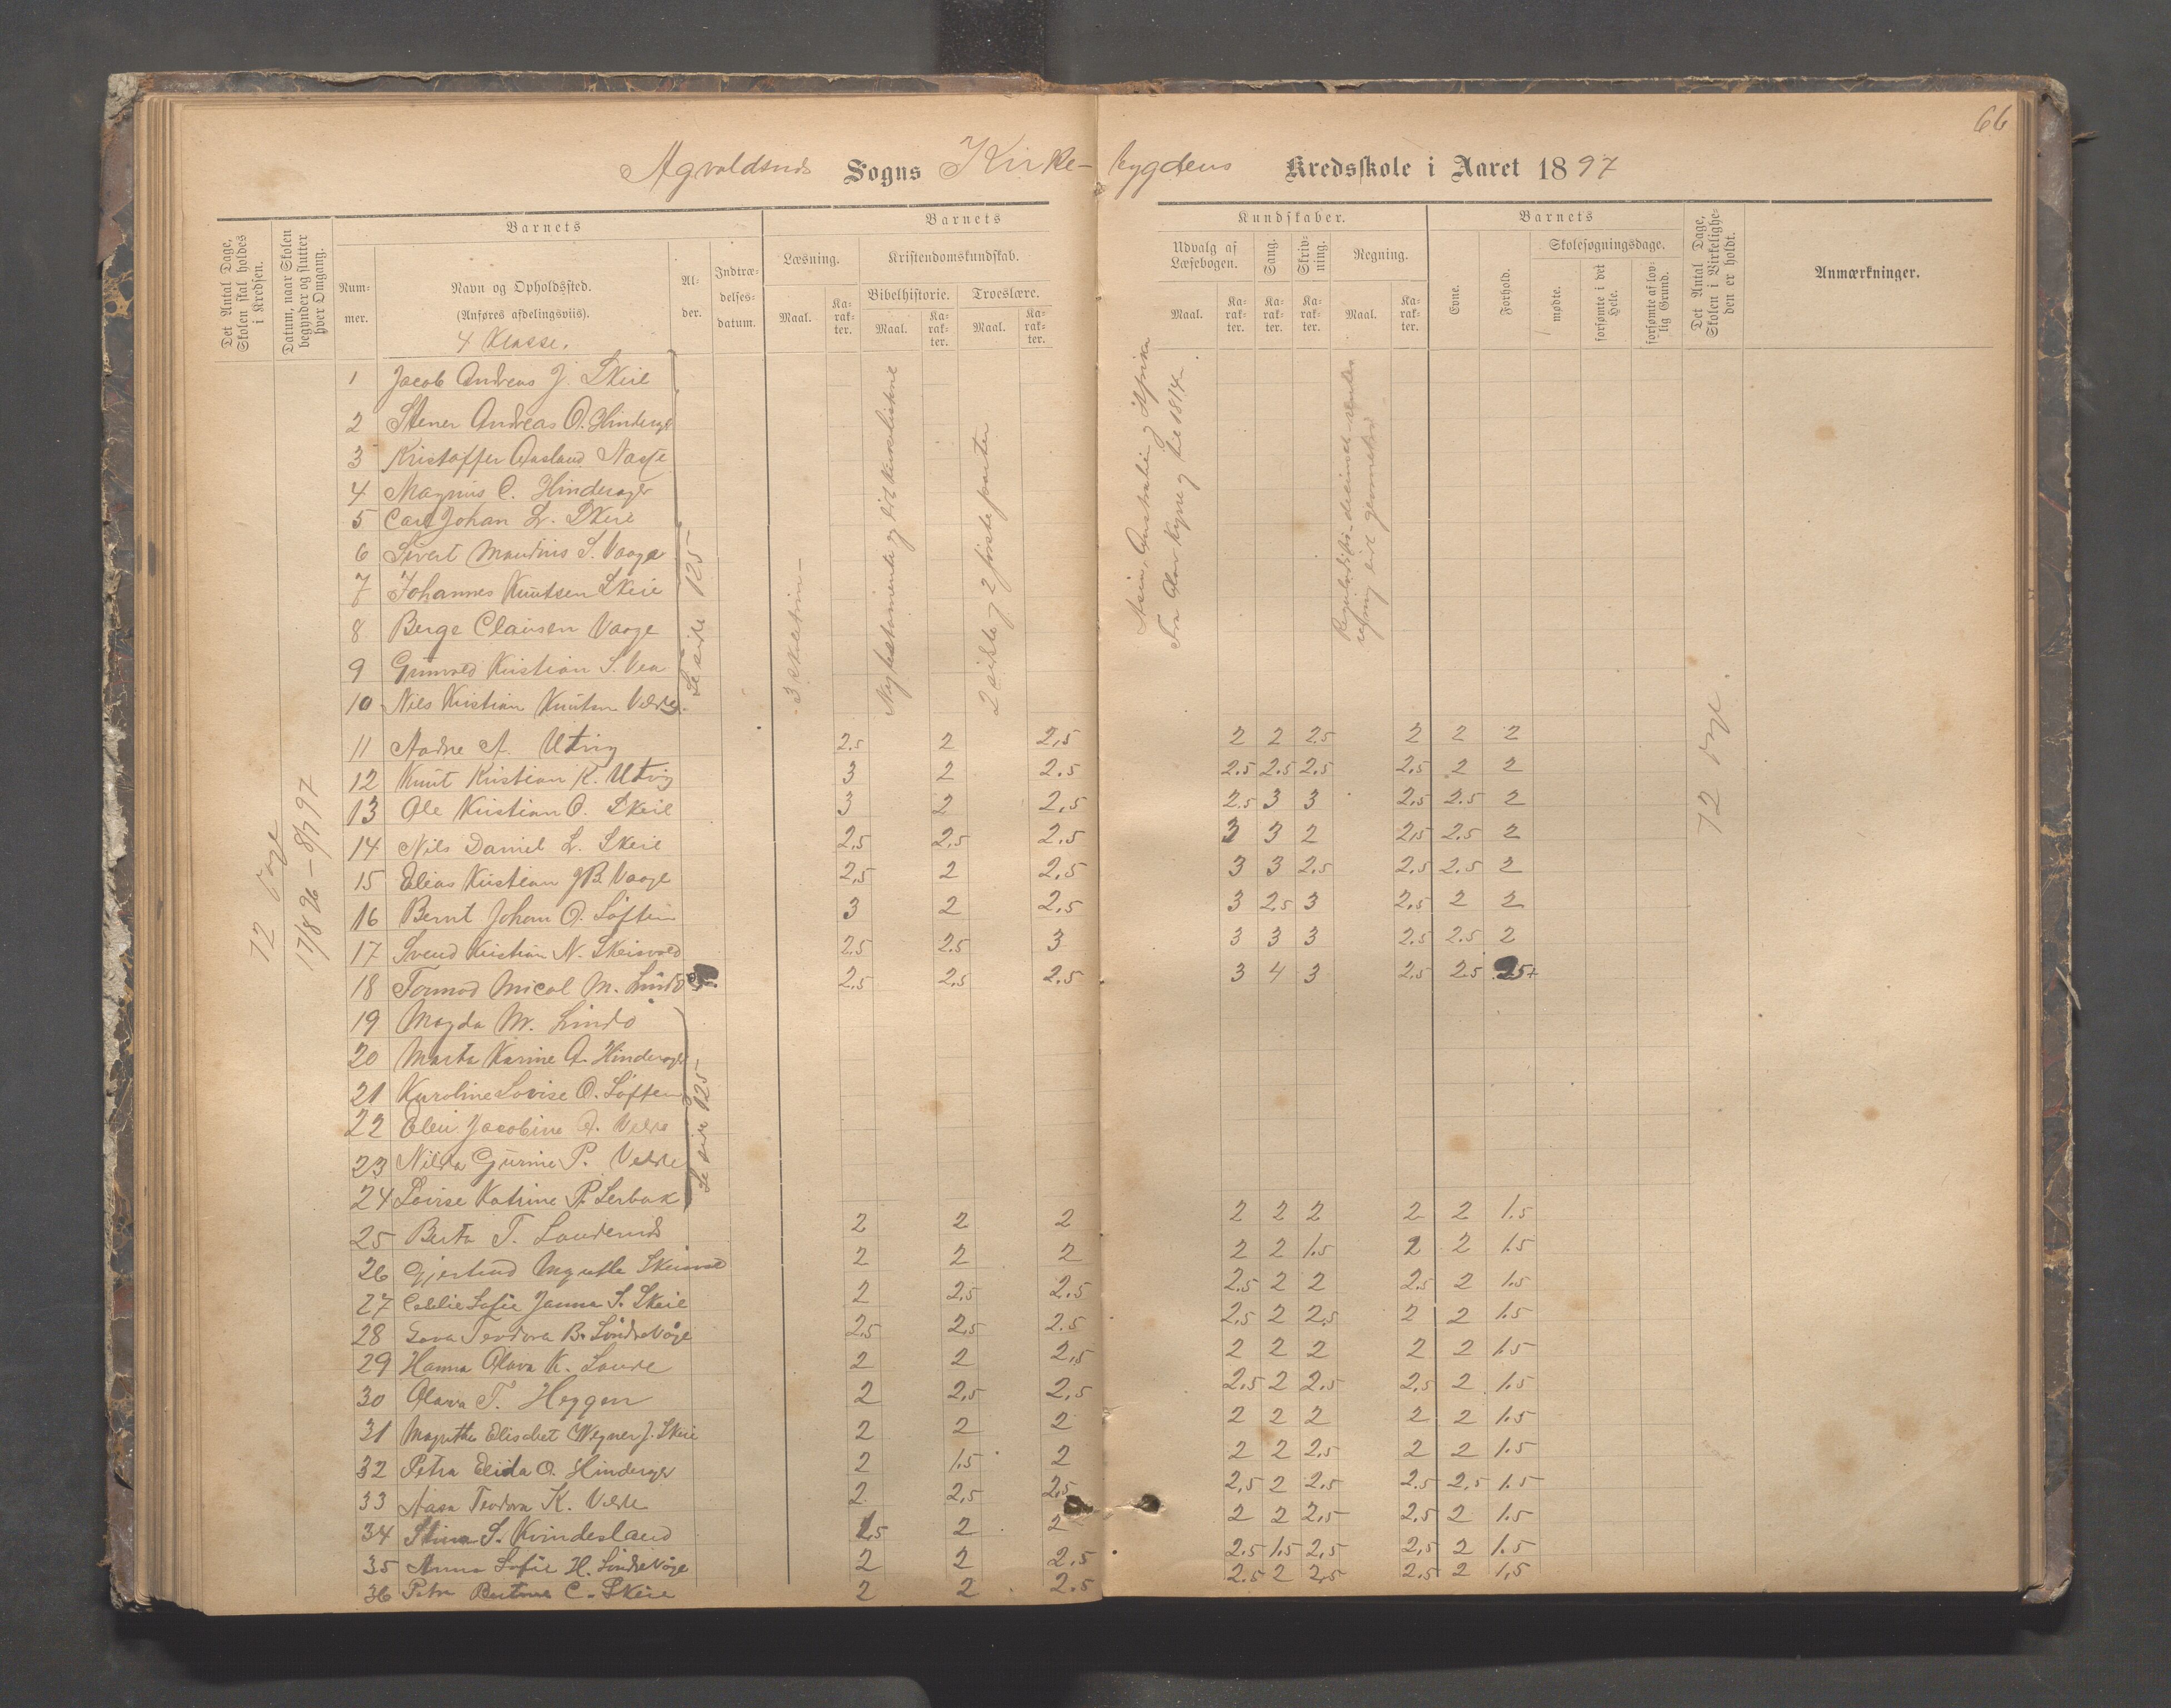 66
Agvaldsnds Sogns Kirke- bygdens Kredsskole i Aaret 1897
Det Antal Dage, Skolen skal holdes i Kredsen.
Datum, naar Skolen begynder og slutter hver Omgang.
Barnets
Nummer.
Navn og Opholdssted.
(Anføres afdelingsviis).
4 Klasse.
Alder.
Indtrædelsesdatum.
Barnets
Læsning.
Maal.
Karakter.
Kristendomskundskab.
Bibelhistorie.
Maal.
Karakter.
Troeslære.
Maal.
Karakter.
Kundskaber.
Udvalg af Læsebogen.
Maal.
Karakter.
Sang.
Karakter.
Skrivning.
Karakter.
Regning.
Maal.
Karakter.
Barnets
Evne.
Forhold.
Skolesøgningsdage.
mødte.
forsømte i det Hele.
forsømte af lovlig Grund.
Det Antal Dage, Skolen i Virkeligheden er holdt.
Anmærkninger.
72
17/8 96 – 8/7 97
Se side 125
Se side 125
2 første parter
Asia, Australien og Afrika
til 1814
72
1 Jacob Andreas J. Skeie
2 Stener Andreas O. Hinderager
3 Kristoffer Aasland
4 Magnus C. Hinderager
5 Carl Johan L. Skeie
6 Sivert Maudius S. Vaage
7 Johannes Knutsen Skeie
8 Berge Clausen Vaage
9 Kristian S. Vea
10 Nils Kristian Knutsen Velde
11 Aadne A. Utvig 2.5 2 2,5 2 2 2.5 2 2 2
12 Knut Kristian K. Utvig 3 2 2.5 2.5 2.5 2.5 2.5 2 2
13 Ole Kristian O. Skeie 3 2 2,5 2.5 3 3 2,5 2.5 2
14 Nils Daniel L. Skeie 2,5 2,5 2.5 3 3 2 2,5 2.5 2
15 Elias Kristian J B. Vaage 2,5 2 2,5 3 3 2.5 2.5 2.5 2
16 Bernt Johan O. Søften 3 2 2,5 3 2.5 3 2,5 2 2
17 Svend Kristian N. Skeisvold 2.5 2.5 3 3 3 3 2.5 2.5 2
18 Tormod Mical M. Lindø 2.5 2,5 2.5 3 4 3 2,5 2.5 2.5+
19 Magda M. Lindø
20 Marta Karine A. Hinderager
21 Karoline Lovise O. Søften
22 Jacobine A. Velde
23 Gurine P. Velde
24 Lovise Katrine P. Lerbak
25 Berta T. 2 2 2 2 2 2 2 2 1.5
26 Gjertrud Skeisvold 2 2 2 2 2 1.5 2 2 1.5
27 Sofie Janna S. Skeie 2 2,5 2.5 2.5 2 2 2.5 2 1.5
28 Teodora B. Søndrevåge 2,5 2,5 2.5 2,5 2 2,5 2 2 1.5
29 Hanna Olava K. Lande 2 2 2,5 2 2 2 2 2 1.5
30 Olava T. Heggen 2 2,5 2,5 2,5 2 2,5 2,5 2 1.5
31 Elisabet Wegner J. Skeie 2 2 2 2 2 2 2 2 1.5
32 Petra Elida O. Hinderager 2 1.5 2 2 2 2,5 2 2 1.5
33 Aasa Teodora K. Velde 2 2,5 2,5 2,5 2 2.5 2.5 2,5 1.5
34 Stina S. Kvindesland 1,5 2 2 2 2 2,5 2,5 2 1.5
35 Anna Sofie H. Søndrevåge 2 2 2,5 2.5 1.5 2,5 2,5 2 1.5
36 Petra Bertine C. Skeie 2 2 2.5 2.5 2 2,5 2.5 2 1,5